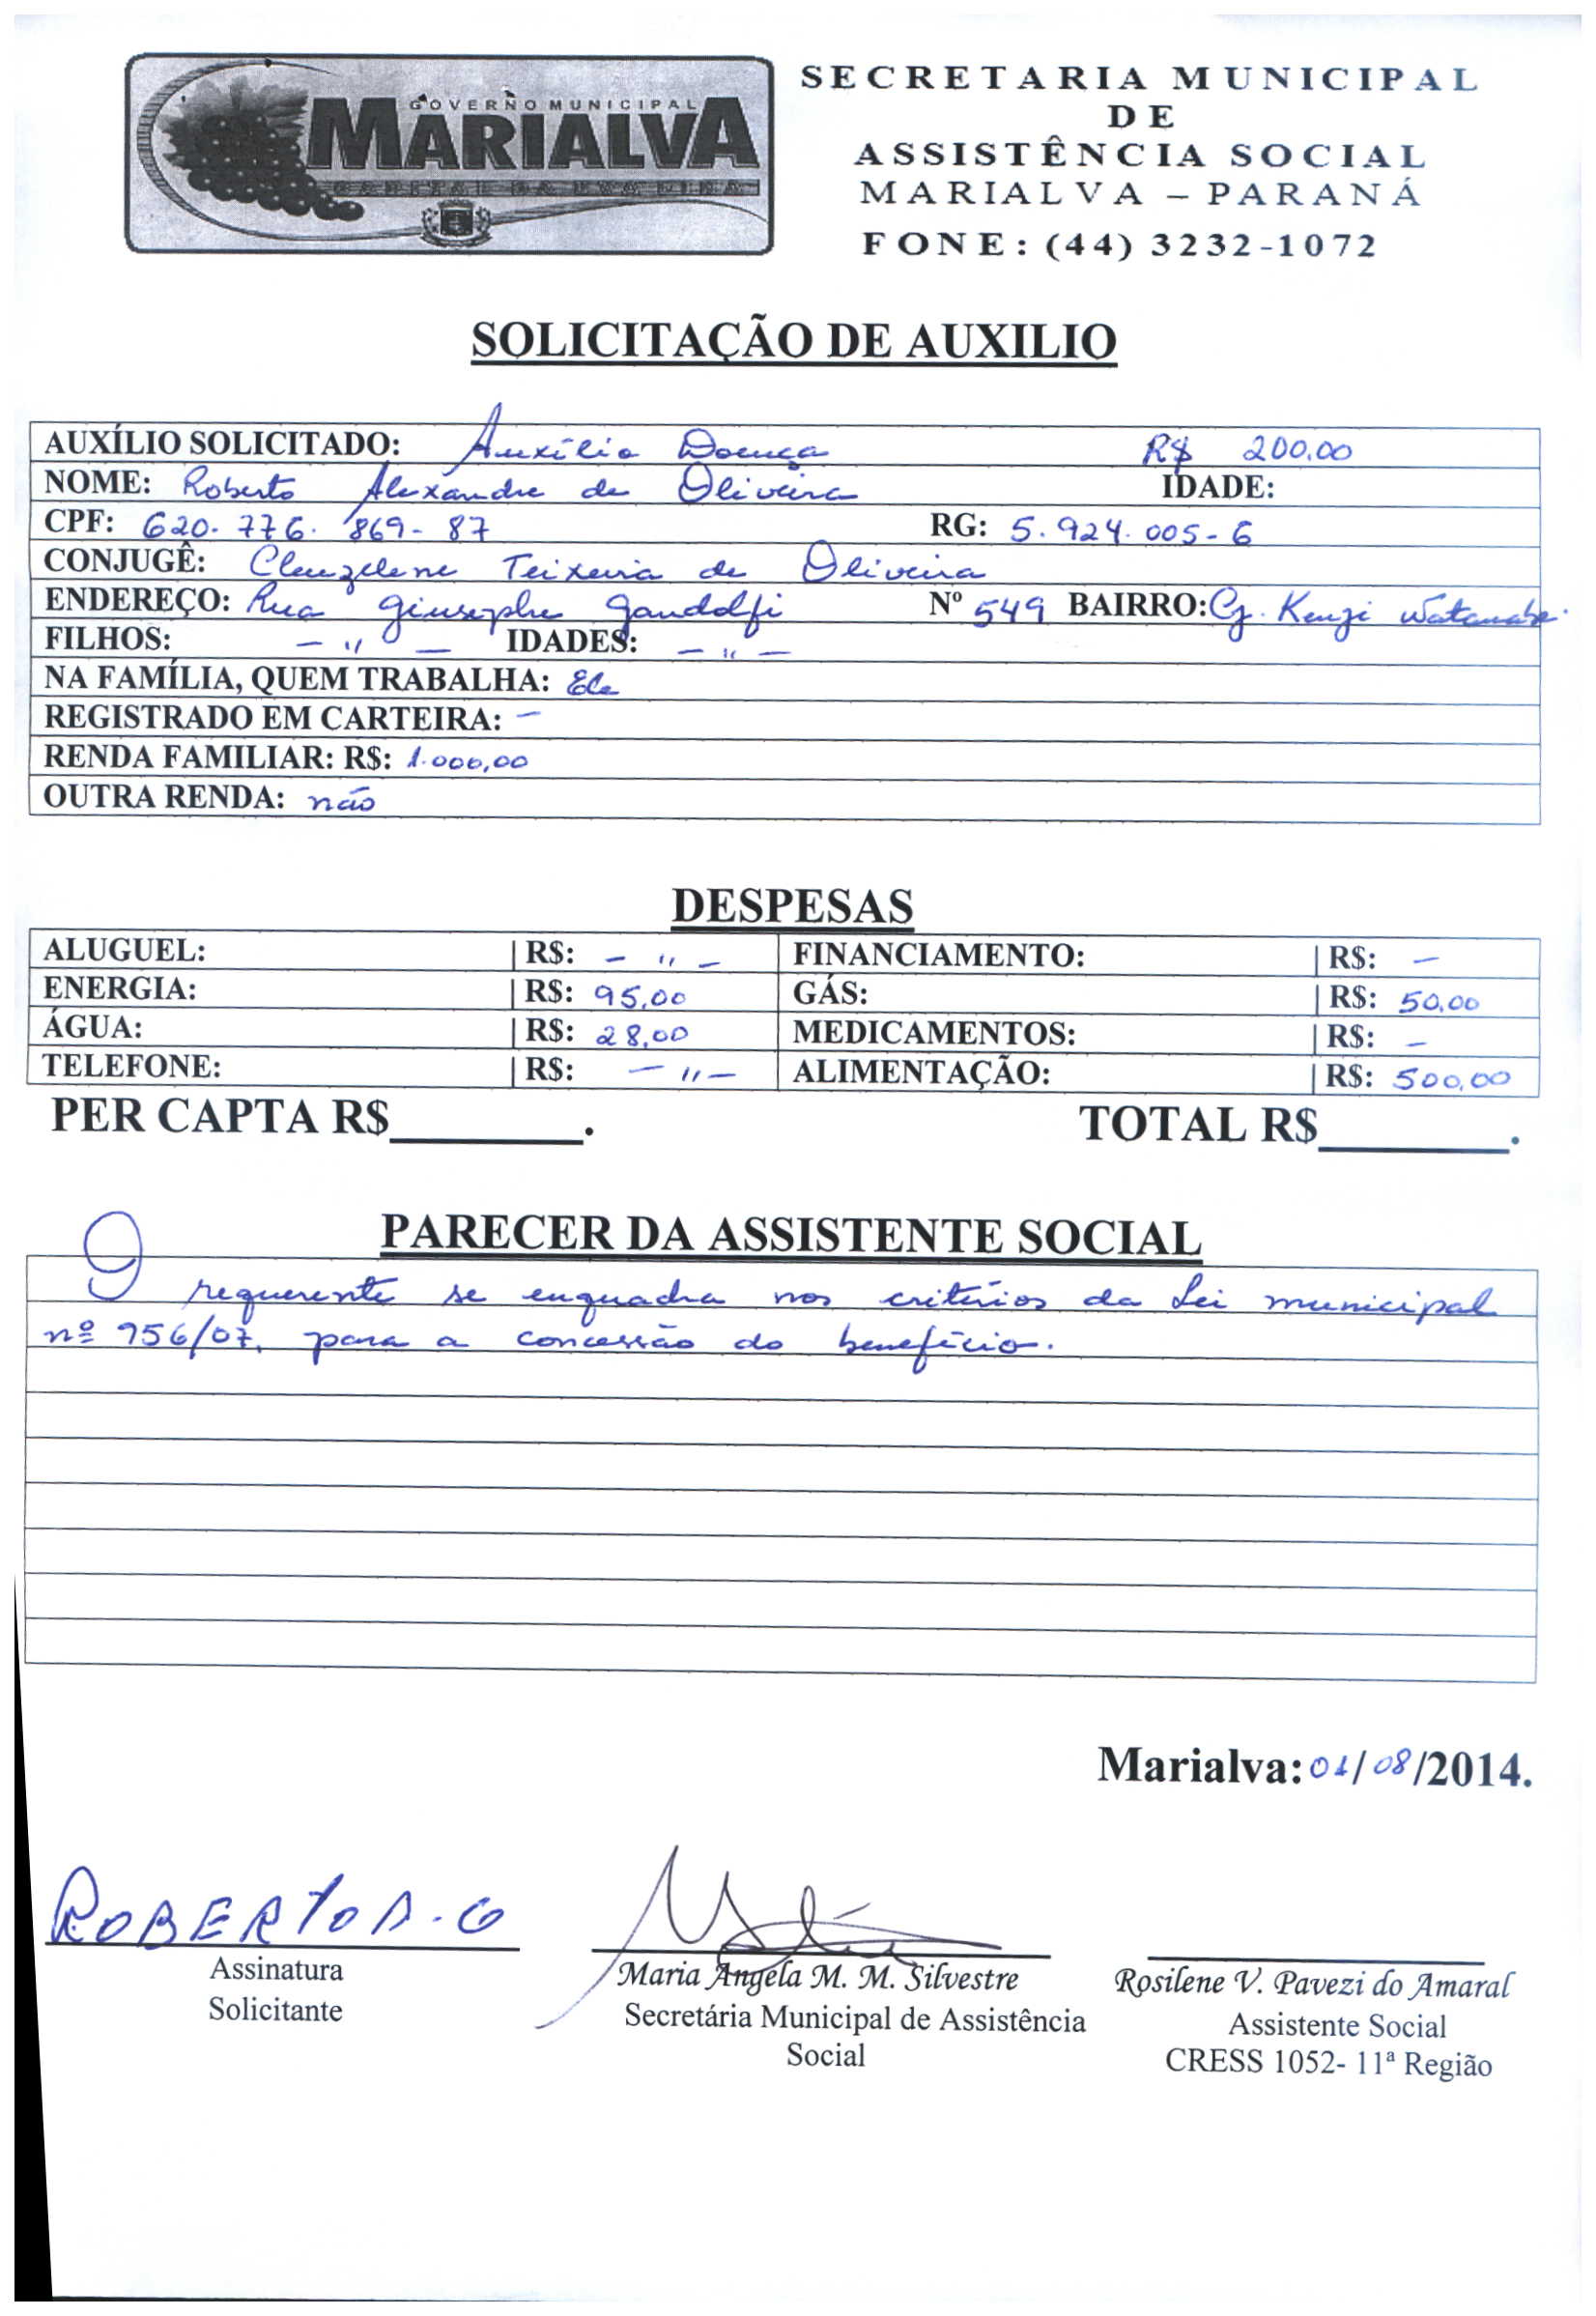 GOVERNO MUNICIPAL
MARIALVA
CAPITAL DA UVA FINA
SECRETARIA MUNICIPAL
DE
ASSISTÊNCIA SOCIAL
MARIALVA – PARANÁ
FONE: (44) 3232-1072
SOLICITAÇÃO DE AUXILIO
AUXÍLIO SOLICITADO: Auxílio Doença R$ 200,00
NOME: Roberto Alexandre de Oliveira IDADE:
CPF: 620.776.869-87 RG: 5.924.005-6
CONJUGÊ: Cleuzelene Teixeira de Oliveira
ENDEREÇO: Rua Giusephe Gandolfi Nº 549 BAIRRO: Cj. Kenji Watanabe.
FILHOS: - " - IDADES: - " -
NA FAMÍLIA, QUEM TRABALHA: Ele
REGISTRADO EM CARTEIRA: -
RENDA FAMILIAR: R$: 1.000,00
OUTRA RENDA: não
DESPESAS
ALUGUEL: | R$: - " - FINANCIAMENTO: | R$: -
ENERGIA: | R$: 95,00 GÁS: | R$: 50,00
ÁGUA: | R$: 28,00 MEDICAMENTOS: | R$: -
TELEFONE: | R$: - " - ALIMENTAÇÃO: | R$: 500,00
PER CAPTA R$________. TOTAL R$________.
PARECER DA ASSISTENTE SOCIAL
O requerente se enquadra nos critérios da Lei municipal
nº 956/07, para a concessão do benefício.
Marialva: 01/08/2014.
ROBERTO A. O
Assinatura
Solicitante
Maria Angela M. M. Silvestre
Secretária Municipal de Assistência
Social
Rosilene V. Pavezi do Amaral
Assistente Social
CRESS 1052- 11ª Região